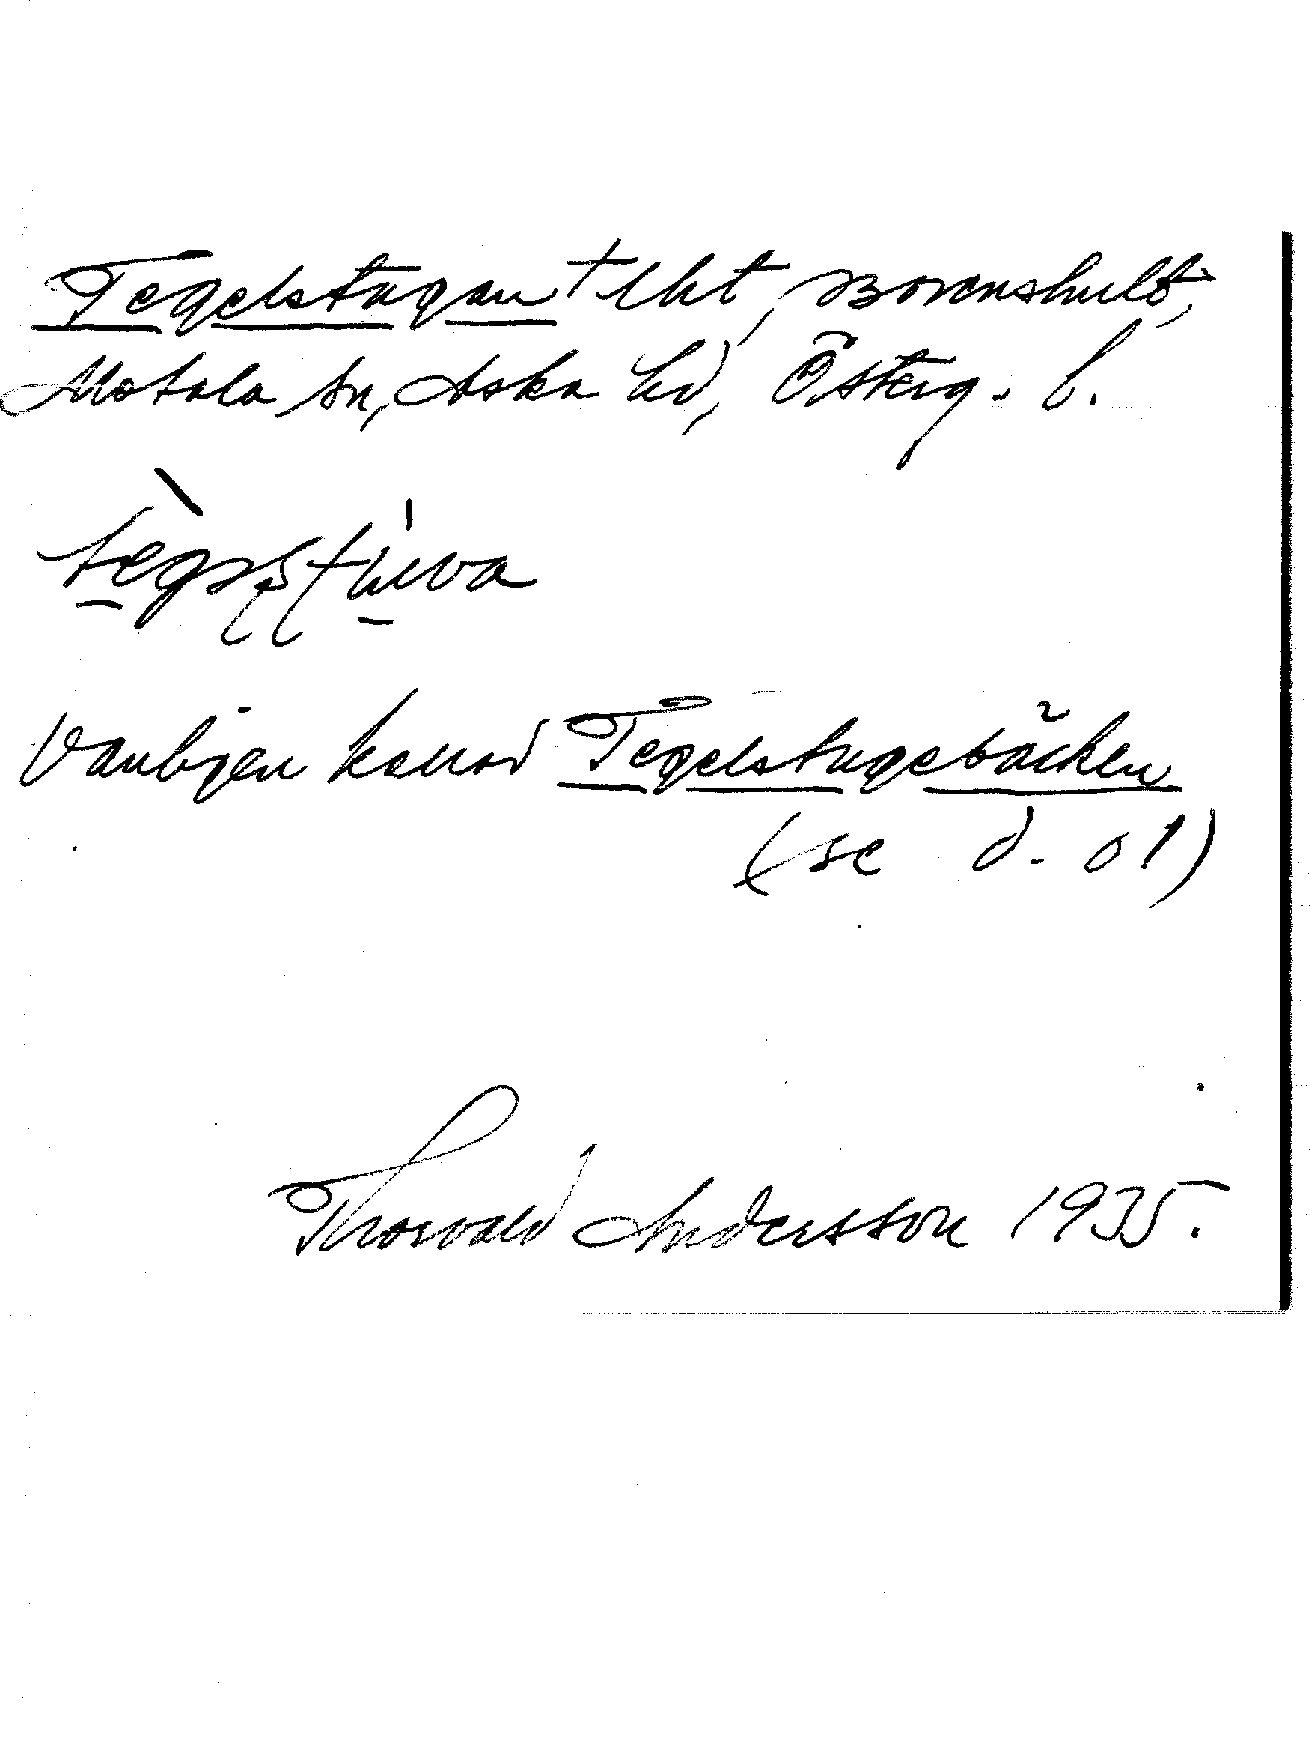 Tegelstugan † lht, Borenshult,
Motala sn, Aska hd, Österg. l.
Vanligen kallad Tegelstugebäcken
(se d. o!)
Thorvald Andersson 1935.